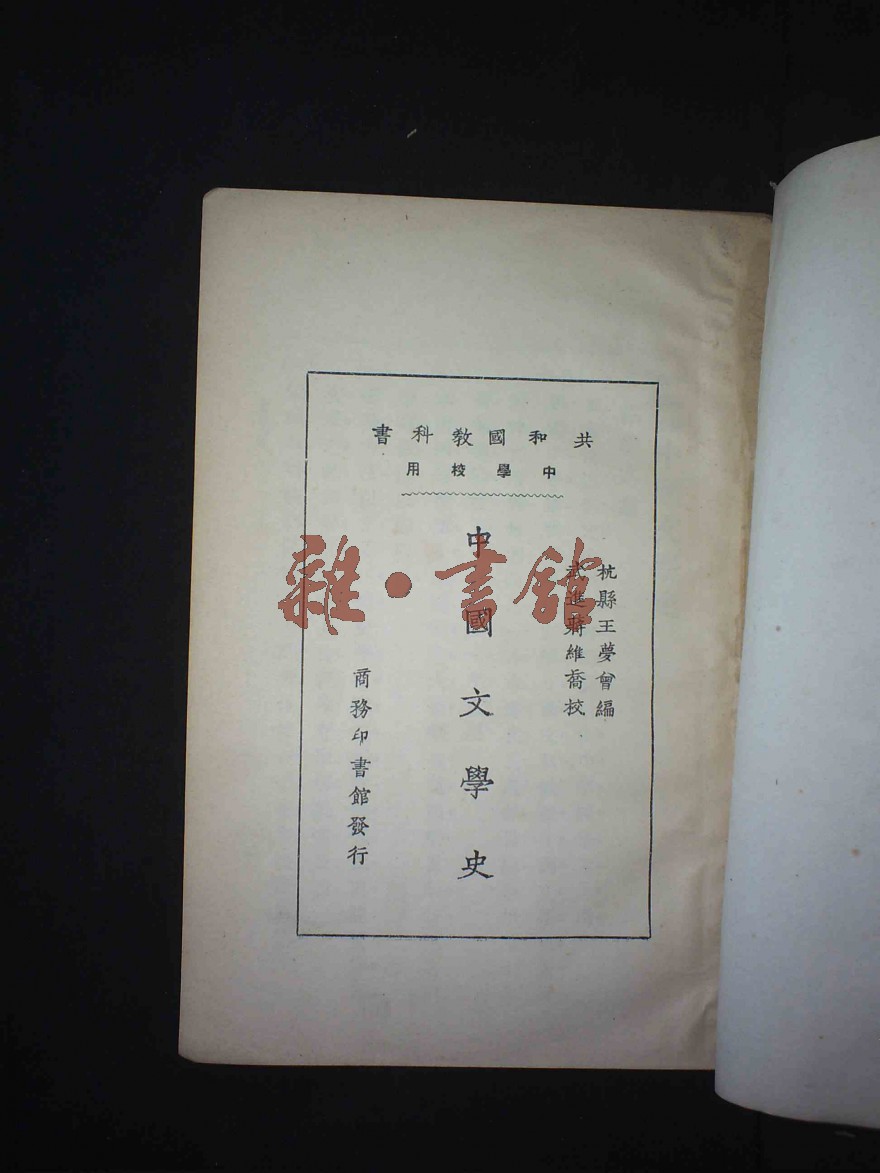 共和國教科書
中學校用
杭縣王夢曾編
武進蔣維喬校
中國文學史
商務印書館發行
雜·書館